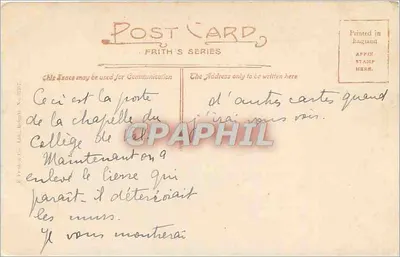 POST CARD
FRITH'S SERIES
This Space may be used for Communication
The Address only to be written here
Printed in England
AFFIX
STAMP
HERE.
Ceci est la porte
de la chapelle du
Collège de
Maintenant on a
enlevé le lierre qui
paraît-il détériorait
les murs.
Je vous montrerai
d'autres cartes quand
j'irai vous voir.
CPAPHIL